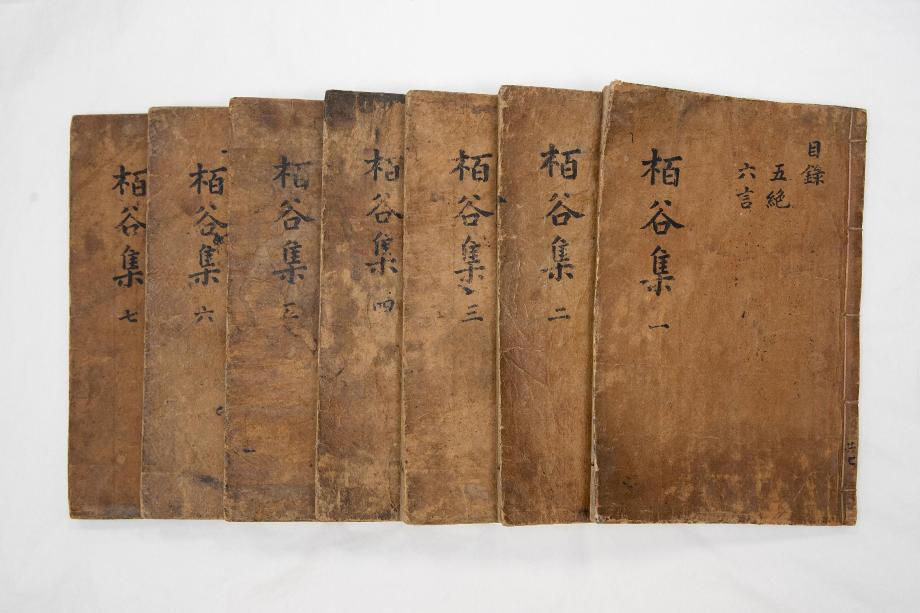 目錄
五絶
六言
栢谷集 一
栢谷集 二
栢谷集 三
栢谷集 四
栢谷集 五
栢谷集 六
栢谷集 七